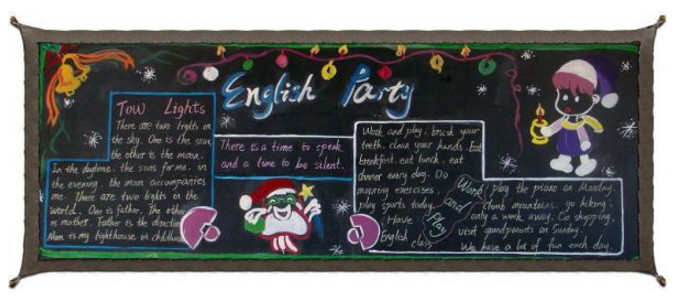 English Party
Tow Lights
There are two lights in
the sky. One is the sun,
the other is the moon.
In the daytime. the suns for me. in
the evening. the moon accompanies
me. There are two lights in the
world. One is father. The other
is mother. Father is the direction
Mom is my lighthouse in
There is a time to speak
and a time to be silent.
Work and play. brush your
teeth. clean your hands. Eat
breakfast. eat lunch. eat
dinner every day. Do
morning exercises.
play sports today.
Have
English class
Work
and
Play
play the piano on Monday.
climb mountains. go hiking.
only a week away. Go shopping.
visit grandparents on Sunday.
We have a lot of fun each day.